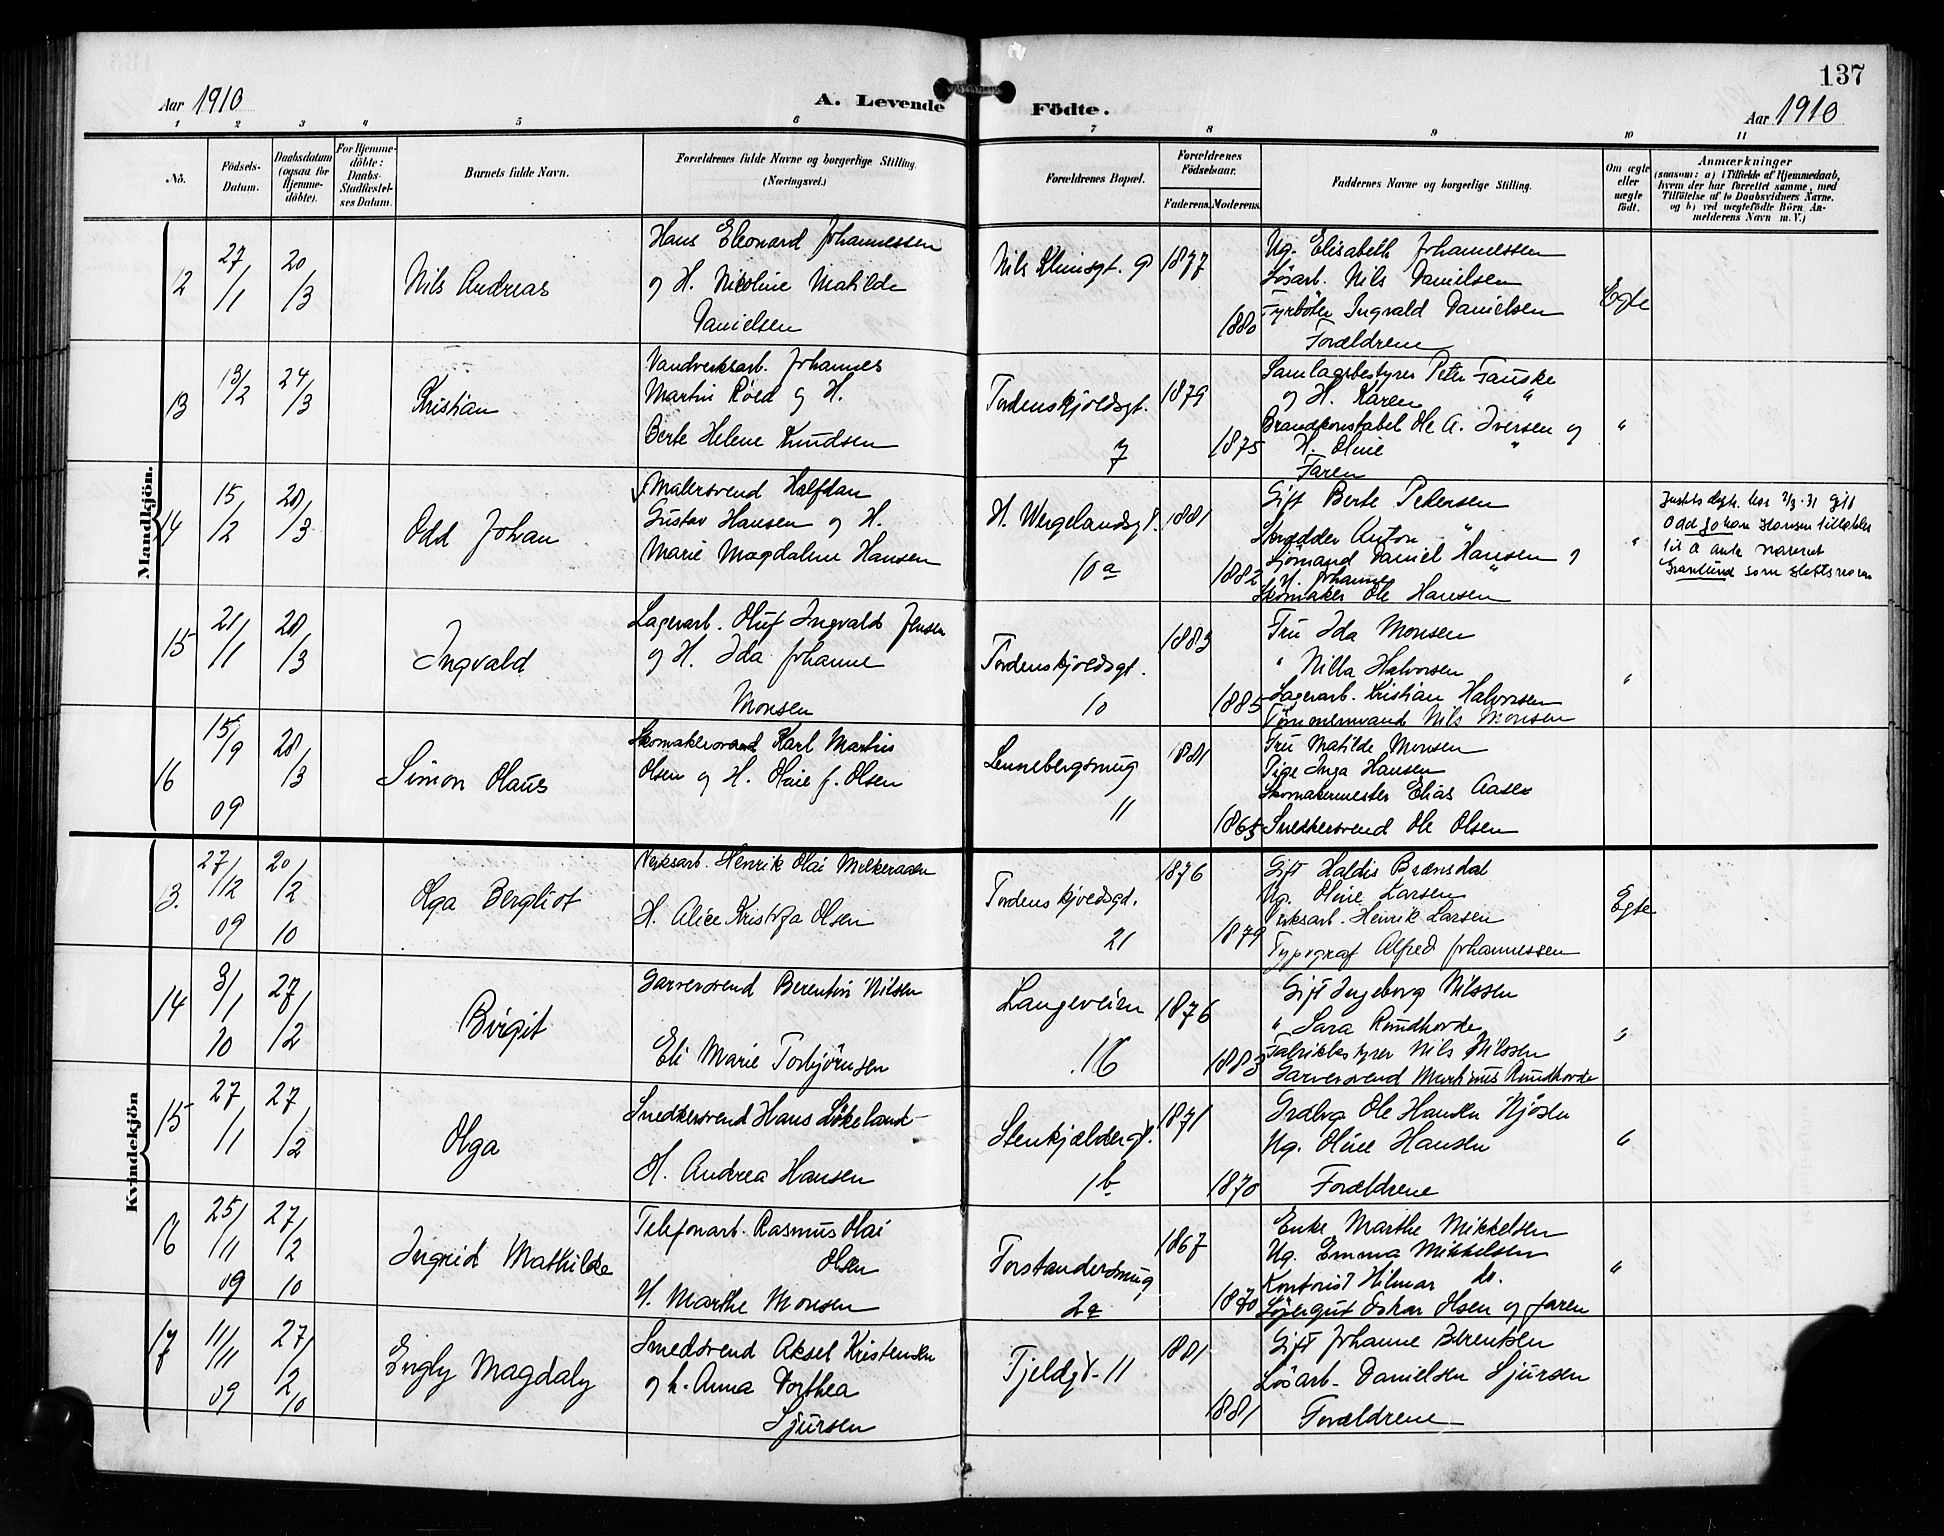 137
Aar 1910
A. Levende Födte.
Aar 1910
1 2 3 4 5 6 7 8 9 10 11
No.
Födsels-Datum.
Daabsdatum (ogsaa for Hjemme-döbte).
For Hjemme-döbte: Daabs-Stadfæstel-ses Datum.
Barnets fulde Navn.
Forældrenes fulde Navne og borgerlige Stilling.
(Næringsvei.)
Forældrenes Bopæl.
Forældrenes Födselsaar.
Faderens. Moderens.
Faddernes Navne og borgerlige Stilling.
Om ægte eller uægte födt.
Anmærkninger
(saasom: a) i Tilfælde af Hjemmedaab,
hvem der har forrettet samme, med
Tilföielse af to Daabsvidners Navne.
og b) ved uægtefödte Börn An-
melderens Navn m. V.)
Mandkjön.
12
27/1
20/3
Nils Andreas
Hans Eleonard Johannessen
og H. Nicoline Matilde
Danielsen
Nils Klimsgt. 9
1877
1880
Ug. Elisabeth Johannessen
Lösarb. Nils Danielsen
Fyrböter Ingvald Danielsen
Forældrene
Egte
13
13/2
24/3
Kristian
Vandverksarb. Johannes
Martin Röed og H.
Berte Helene Knudsen
Tordenskjoldsgt.
7
1879
1875
Samlagsbestyrer Peter Fauske
og H. Karen "
Brandkonstabel Ole A. Iversen og
H. Oline "
Faren
"
14
15/2
20/3
Odd Johan
Malersvend Halfdan
Gustav Hansen og H.
Marie Magdalene Hansen
H. Wergelandsgt.
10a
1881
1882
Gift Berte Petersen
Skrædder Anton "
Sjömand Daniel Hansen og
H. Johanne "
Skomaker Ole Hansen
"
Justisdept. har 2/3-31 gitt
Odd Johan Hansen tillatelse
til å anta navnet
Granlund som slektsnavn
15
21/1
28/3
Ingvald
Lagerarb. Oluf Ingvald Jensen
og H. Ida Johanne
Monsen
Tordenskjoldsgt.
10
1883
1885
Fru Ida Monsen
" Nilla Halvorsen
Lagerarb. Kristian Halvorsen
Tömmermand Nils Monsen
"
16
15/9
09
28/3
Simon Olaus
Skomakersvend Karl Martin
Olsen og H. Oline f. Olsen
Lennebergsmug
11
1881
1865
Fru Matilde Monsen
Pige Inga Hansen
Skomakermester Elias Aasen
Snedkersvend Ole Olsen
Kvindekjön
13.
27/12
09
20/2
10
Olga Bergliot
Verksarb. Henrik Olai Melkeraaen
H. Alice Kristofa Olsen
Tordenskjoldsgt.
21
1876
1879
Gift Haldis Brænsdal
Ug. Oline Larsen
Verksarb. Henrik Larsen
Typograf Alfred Johannessen
Egte
14
3/1
10
27/2
Birgit
Garversvend Berentin Nilsen
Eli Marie Torbjörnsen
Langeveien
16
1876
1883
Gift Ingeborg Nilssen
" Sara Rundhovde
Fabrikbestyrer Nils Nilssen
Garversvend Martinus Rundhovde
"
15
27/1
27/2
Olga
Snedkersvend Hans Lökeland
H. Andrea Hansen
Stenkjeldergt.
1b
1871
1870
Ole Hansen Njösen
Ug. Oline Hansen
Forældrene
"
16
25/11
09
27/2
10
Ingrid Mathilde
Telefonarb. Rasmus Olai
Olsen
H. Marthe Monsen
Forstandersmug
2a
1867
1870
Enke Marthe Mikkelsen
Ug. Emma Mikkelsen
Kontorist Hilmar do.
Löpergut Oskar Olsen og faren
"
17
11/11
09
27/2
10
Engly Magdaly
Smedsvend Aksel Kristensen
og h. Anna Dorthea
Sjursen
Fjeldgt. 11
1881
1881
Gift Johanne Berentsen
Lösarb. Danielsen Sjursen
Forældrene